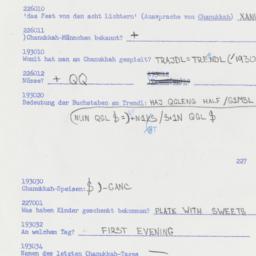 226010
'das Fest von den acht Lichtern' (Aussprache von Chanukkah)
226011
)Chanukkah-Männchen bekannt? +
193010
Womit hat man an Chanukkah gespielt? TRAJDL=TRENDL (/1930
226012
Nüsse? + QQ
193020
Bedeutung der Buchstaben am Trendl: HAJ QGLENG HALF /GIMBL
227
193030
Chanukkah-Speisen: $ )-GANC
227001
Was haben Kinder geschenkt bekommen? PLATE WITH SWEETS
193032
An welchem Tag? FIRST EVENING
193034
Namen des letzten Chanukkah-Tages —